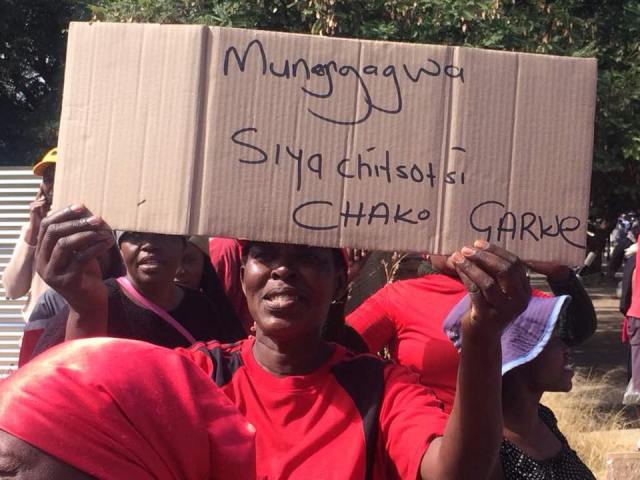 Munangagwa
Siya chitsotsi
CHAKO GARWE